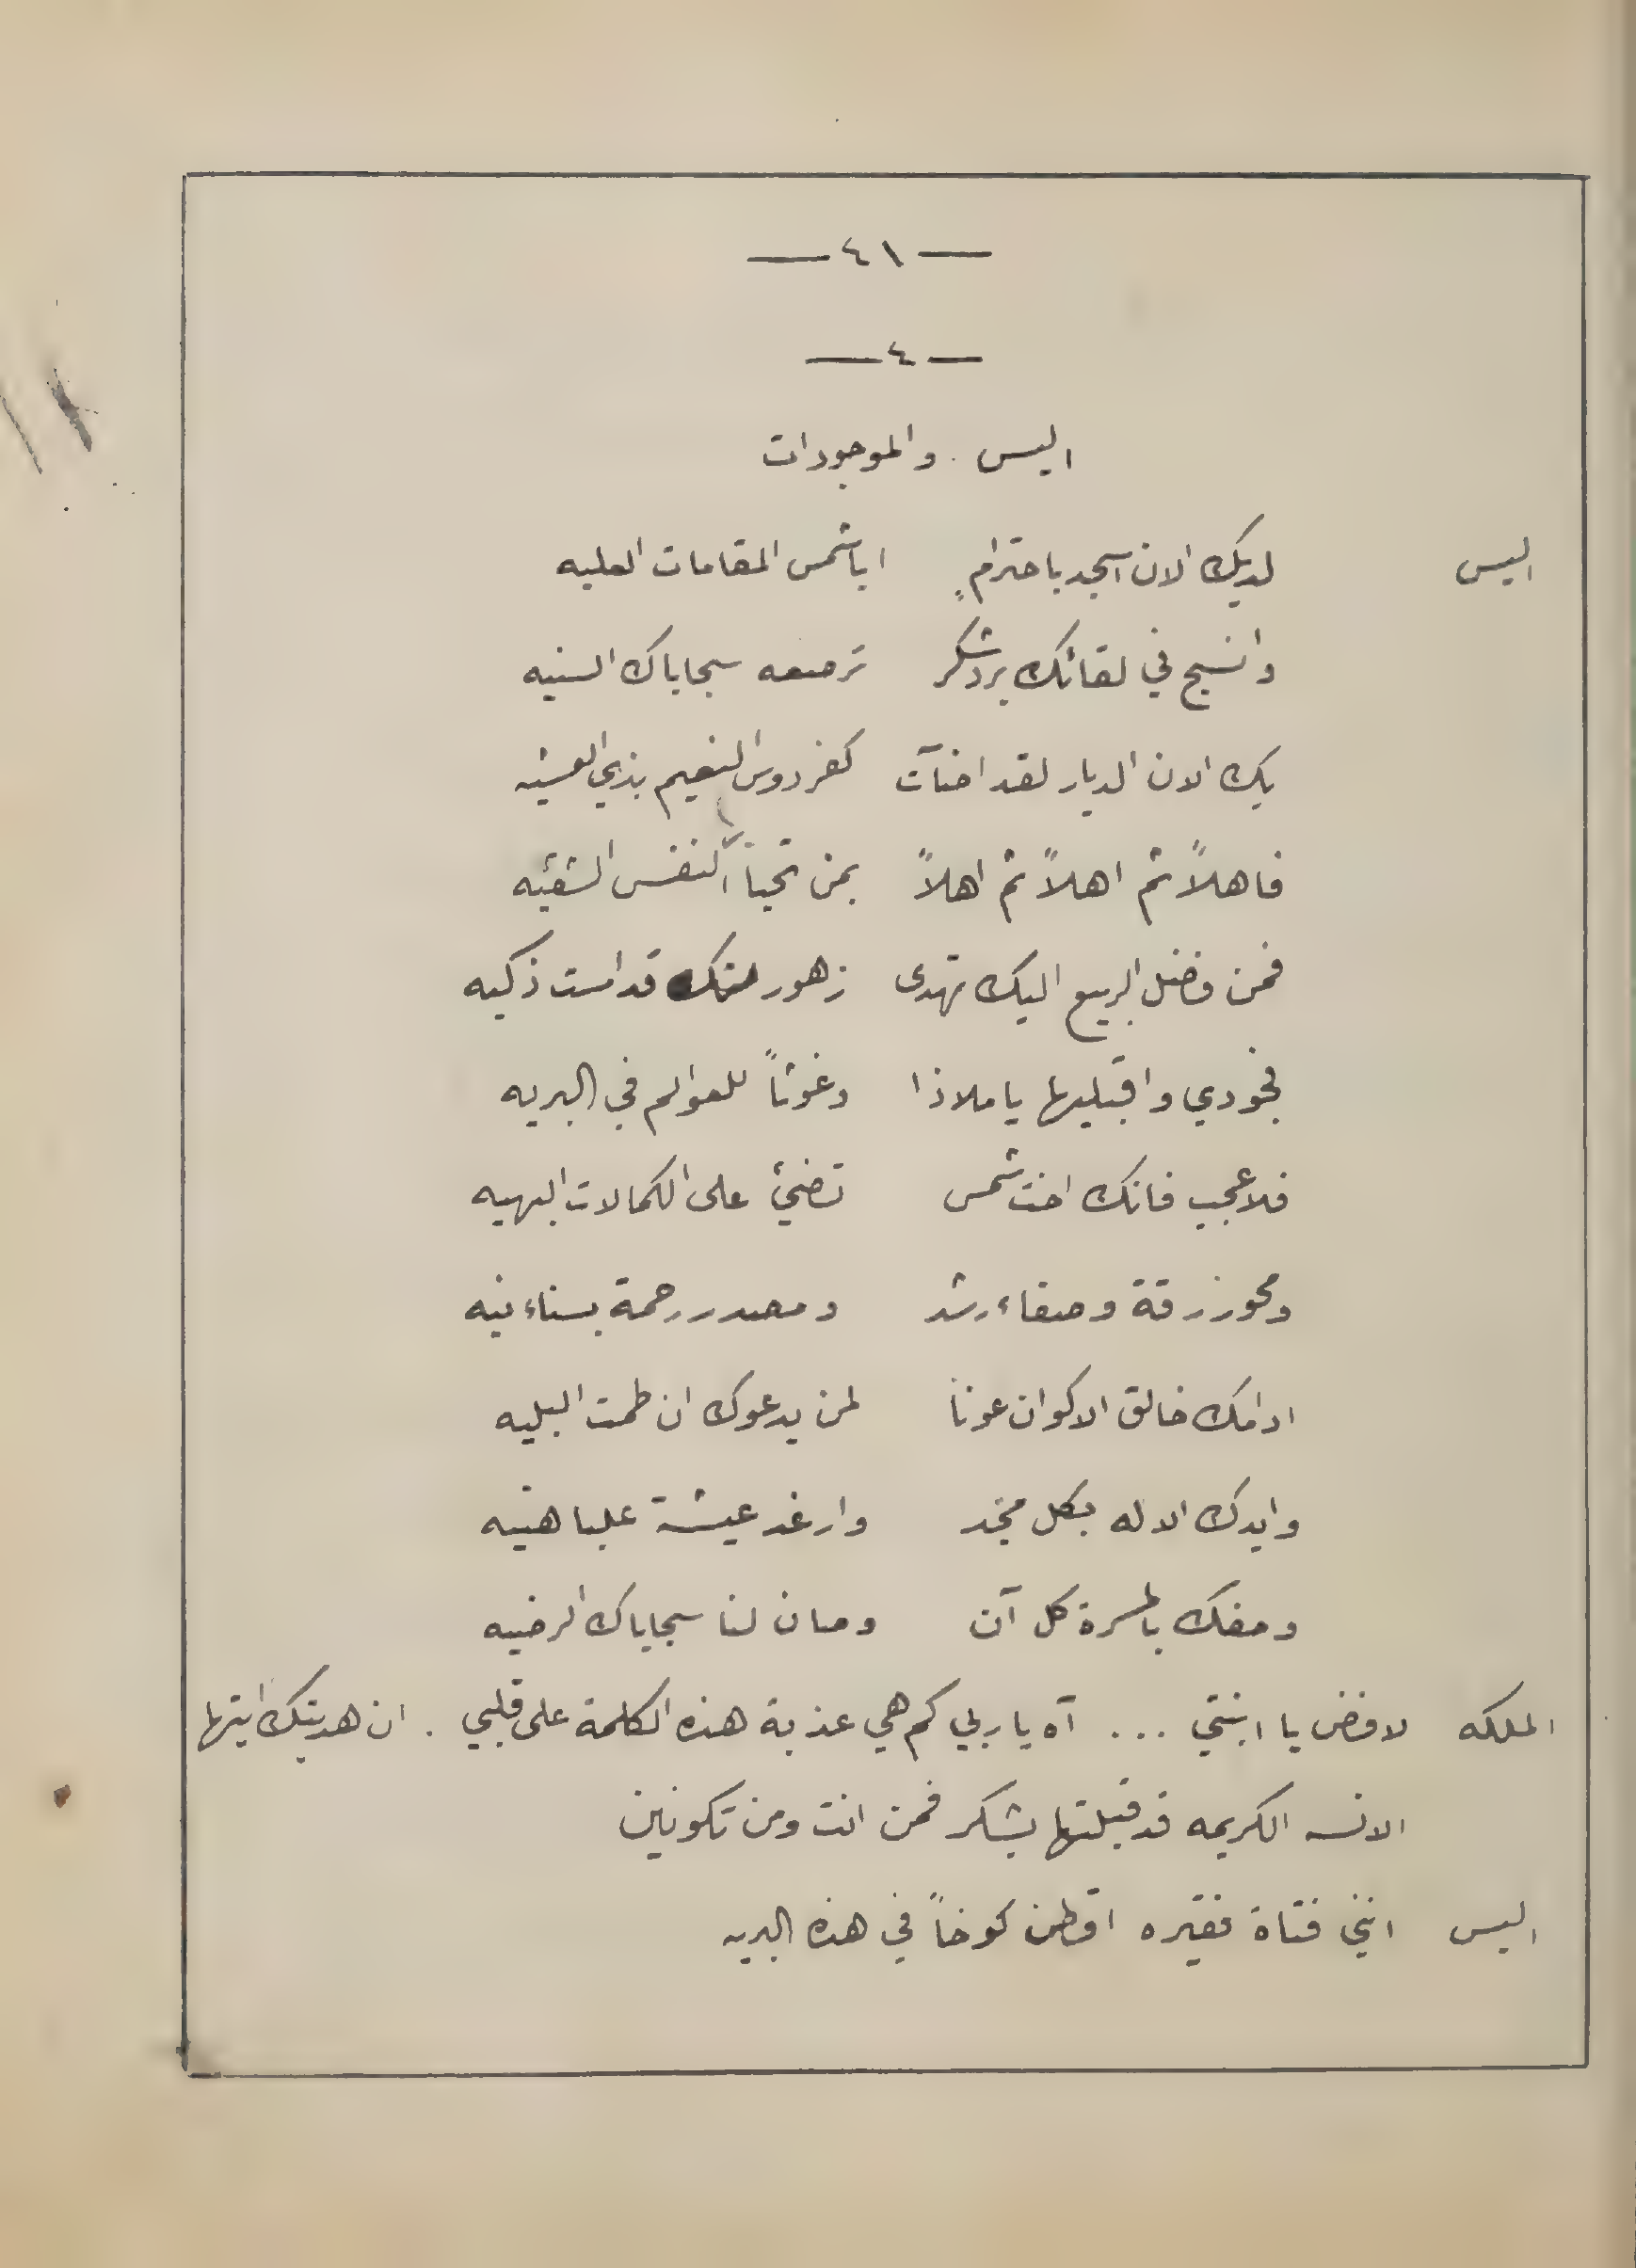 — ٤١ —
— ٤ —
اليس . والموجودات
اليس لديك الان آسجد باحترامٍ ايا شمس المقامات العليه
وانسج في لقائك برد شكر ترصعه سجاياك السنيه
بك الان الديار لقد اضآت كفردوس النعيم بذي العشيه
فاهلاً ثم اهلاً ثم اهلاً بمن تحيا النفس الشقيه
فمن فضل الربيع اليك تهدى زهور منك قد امست ذكيه
فجودي واقبليها يا ملاذا وغوثاً للعوالم في البريه
فلا عجب فانك اخت شمس تضئ على الكمالات البهيه
ومحور رقة وصفاء رشد ومصدر رحمة بسناء نيه
ادامك خالق الاكوان عونا لمن يدعوك ان طمت البليه
وايدك الاله بكل مجد وارغد عيشة عليا هنيه
وحفك بالمسرة كل آن وصان لنا سجاياك الرضيه
الملكه لافض يا ابنتي ... آه يا ربي كم هي عذبة هذه الكلمة على قلبي . ان هديتك ايتها
الانسه الكريمه قد قبلتها بشكر فمن انت ومن تكونين
اليس انني فتاة فقيره اقطن كوخاً في هذه البريه